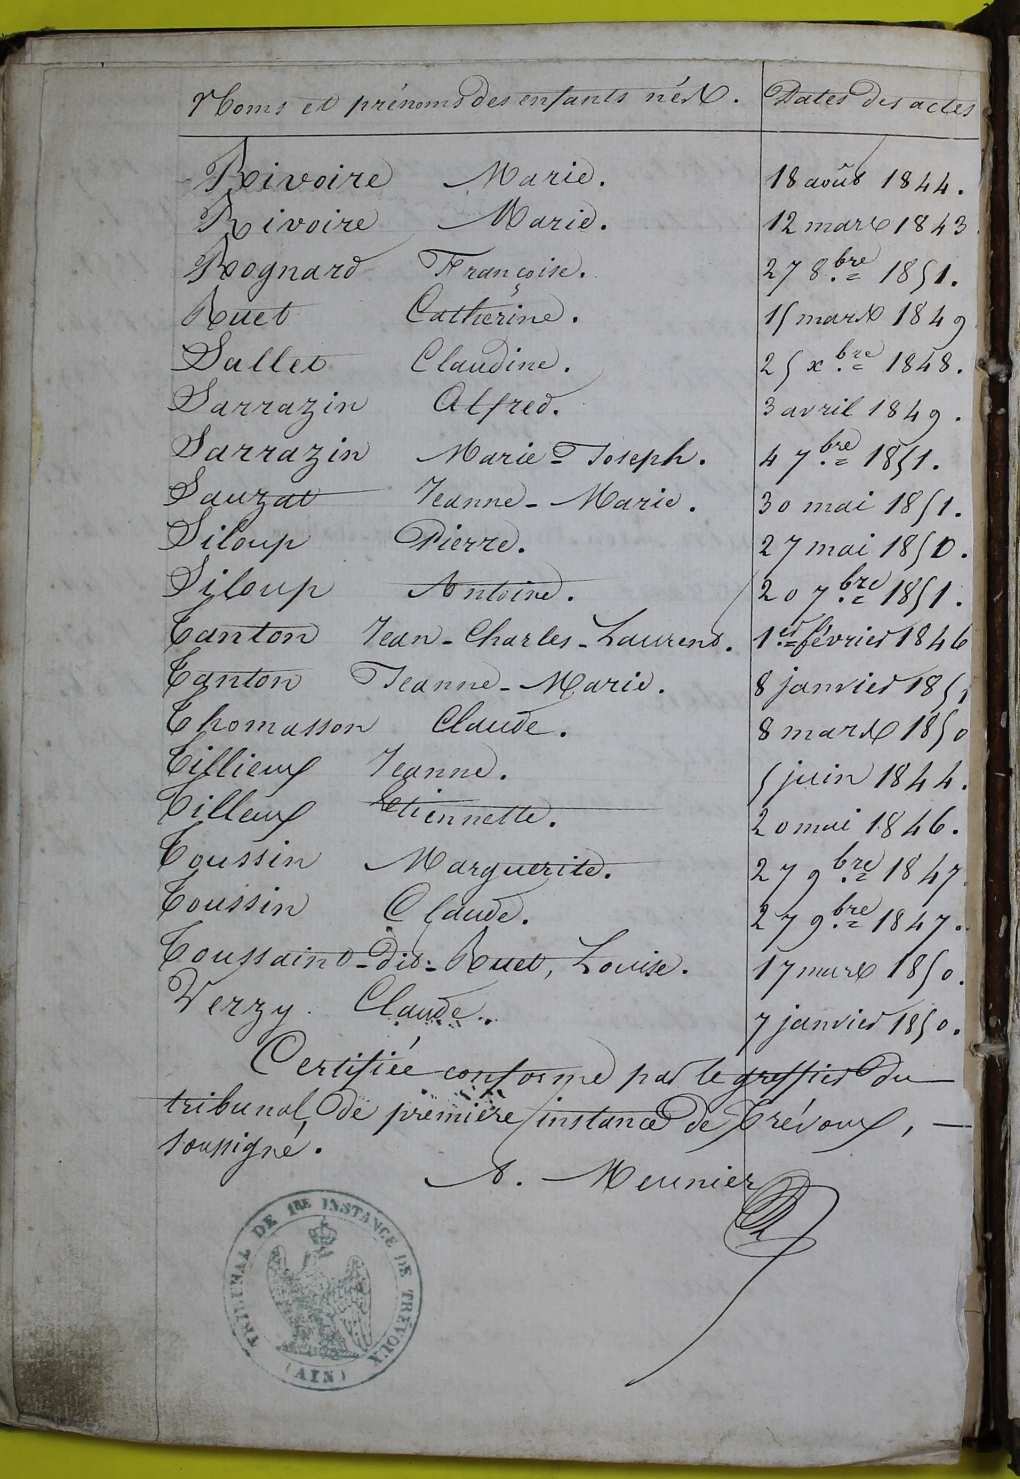 Noms et prénoms des enfants nés. Dates des actes
Rivoire Marie. 18 août 1844.
Rivoire Marie. 12 mars 1843.
Rognard Françoise. 27 8.bre 1851.
Ruet Catherine. 15 mars 1849
Sallet Claudine. 25 x.bre 1848.
Sarrazin Alfred. 3 avril 1849.
Sarrazin Marie-Joseph. 4 7.bre 1851.
Sauzat Jeanne-Marie. 30 mai 1851.
Siloup Pierre. 27 mai 1850.
Siloup Antoine. 20 7.bre 1851.
Tanton Jean-Charles-Laurent. 1.er février 1846
Tanton Jeanne-Marie. 8 janvier 1851
Thomasson Claude. 8 mars 1850
Tillieux Jeanne. 5 juin 1844.
Tilleux Etiennette. 20 mai 1846.
Toussin Marguerite. 27 9.bre 1847.
Toussin Claude. 27 9.bre 1847.
Toussaint-dit-Ruet, Louise. 17 mars 1850.
Verzy. Claude. 7 janvier 1850.
Certifiée conforme par le greffier du
tribunal de première instance de Trévoux,
soussigné.
A. Meunier
TRIBUNAL DE 1RE INSTANCE DE TRÉVOUX
(AIN)